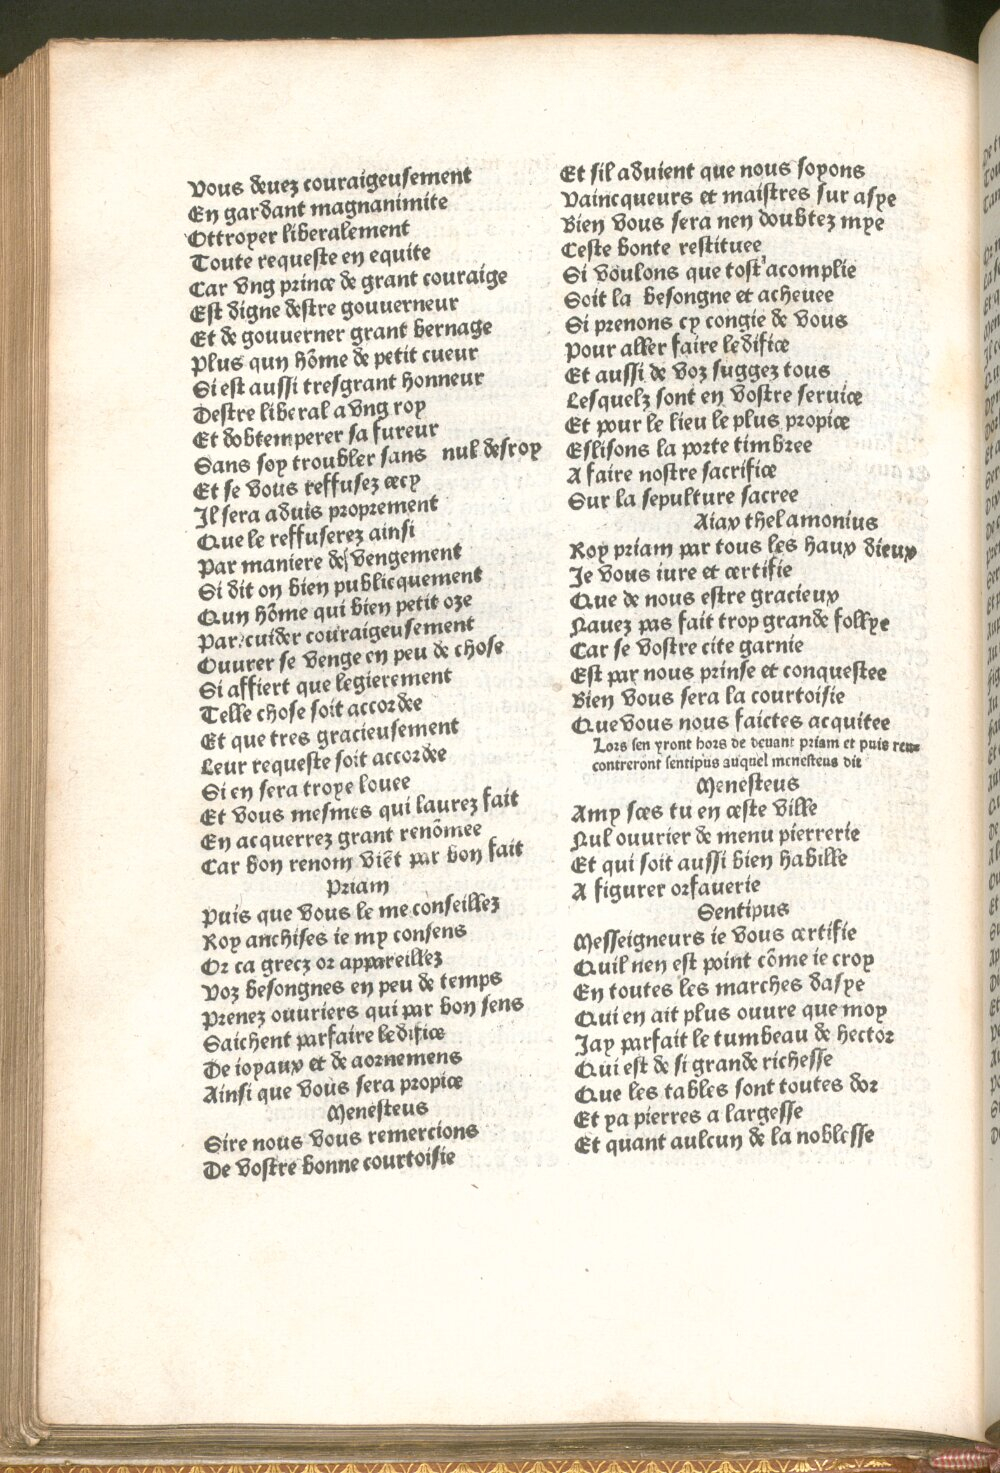 Vous deuez couraigeusement
En gardant magnanimite
Ottroyer liberalement
Toute requeste en equite
Car vng prince de grant couraige
Est digne destre gouuerneur
Et de gouuerner grant bernage
Plus qun hõme de petit cueur
Si est aussi tresgrant honneur
Destre liberal a vng roy
Et dobtemperer sa fureur
Sans soy troubler sans nul desroy
Et se vous reffusez cecy
Il sera aduis proprement
Que le reffuserez ainsi
Par maniere de vengement
Si dit on bien publicquement
Qun hõme qui bien petit oze
Par cuider couraigeusement
Ouurer se venge en peu de chose
Si affiert que legierement
Telle chose soit accordee
Et que tres gracieusement
Leur requeste soit accordee
Si en sera troye louee
Et vous mesmes qui laurez fait
En acquerrez grant renõmee
Car bon renom viẽt par bon fait
Priam
Puis que vous le me conseillez
Roy anchises ie my consens
Or ca grecz or appareillez
Voz besongnes en peu de temps
Prenez ouuriers qui par bon sens
Saichent parfaire ledifice
De ioyaux et de aornemens
Ainsi que vous sera propice
Menesteus
Sire nous vous remercions
De vostre bonne courtoisie
Et sil aduient que nous soyons
Vaincqueurs et maistres sur asye
Bien vous sera nen doubtez mye
Ceste bonte restituee
Si voulons que tost acomplie
Soit la besongne et acheuee
Si prenons cy congie de vous
Pour aller faire ledifice
Et aussi de voz suggez tous
Lesquelz sont en vostre seruice
Et pour le lieu le plus propice
Eslisons la porte timbree
A faire nostre sacrifice
Sur la sepulture sacree
Aiax thelamonius
Roy priam par tous les haux dieux
Je vous iure et certifie
Que de nous estre gracieux
Nauez pas fait trop grande follye
Car se vostre cite garnie
Est par nous prinse et conquestee
Bien vous sera la courtoisie
Que vous nous faictes acquitee
Lors sen yront hors de deuant priam et puis ren=
contreront sentipus auquel menesteus dit
Menesteus
Amy sces tu en ceste ville
Nul ouurier de menu pierrerie
Et qui soit aussi bien habille
A figurer orfauerie
Sentipus
Messeigneurs ie vous certifie
Quil nen est point cõme ie croy
En toutes les marches dasye
Qui en ait plus ouure que moy
Jay parfait le tumbeau de hector
Qui est de si grande richesse
Que les tables sont toutes dor
Et ya pierres a largesse
Et quant aulcun de la noblesse